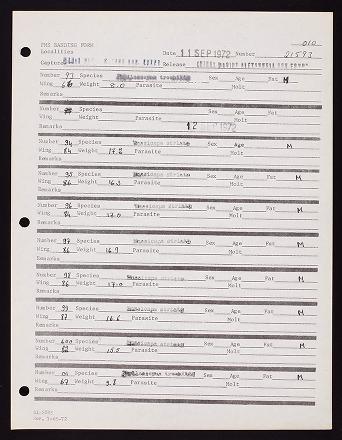 FMS BANDING FORM 010
Localities Date 11 SEP 1972 Number 21593
Capture Release
Number 91 Species Phylloscopus trochilus Sex Age Fat M
Wing 66 Weight 8.0 Parasite Molt
Remarks
Number Species Sex Age Fat
Wing Weight Parasite Molt
Remarks 12 SEP 1972
Number 94 Species Muscicapa striata Sex Age Fat M
Wing 84 Weight 17.2 Parasite Molt
Remarks
Number 95 Species Muscicapa striata Sex Age Fat M
Wing 86 Weight 16.3 Parasite Molt
Remarks
Number 96 Species Muscicapa striata Sex Age Fat M
Wing 84 Weight 17.0 Parasite Molt
Remarks
Number 97 Species Muscicapa striata Sex Age Fat M
Wing 86 Weight 16.9 Parasite Molt
Remarks
Number 98 Species Muscicapa striata Sex Age Fat M
Wing 86 Weight 17.0 Parasite Molt
Remarks
Number 99 Species Muscicapa striata Sex Age Fat M
Wing 87 Weight 16.6 Parasite Molt
Remarks
Number 600 Species Muscicapa striata Sex Age Fat M
Wing 82 Weight 15.5 Parasite Molt
Remarks
Number 01 Species Phylloscopus trochilus Sex Age Fat M
Wing 67 Weight 9.8 Parasite Molt
Remarks